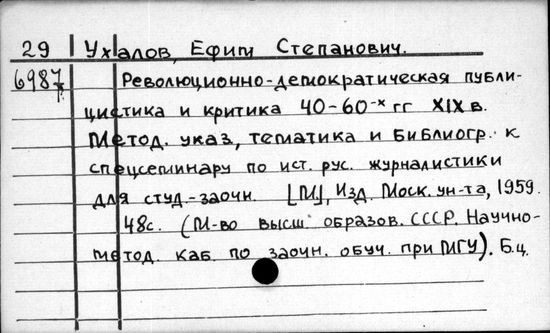 29 Ухалов, Ефим Степанович.
6987 Революционно-демократическая публи-
цистика и критика 40-60-х гг XIX в.
Метод. указ., тематика и библиогр. к
спецсеминару по ист. рус. журналистики
для студ.-заочн. [М], Изд. Моск. ун-та, 1959.
48с. (М-во высш. образов. СССР. Научно-
метод. каб. по заочн. обуч. при МГУ). Б.ц.